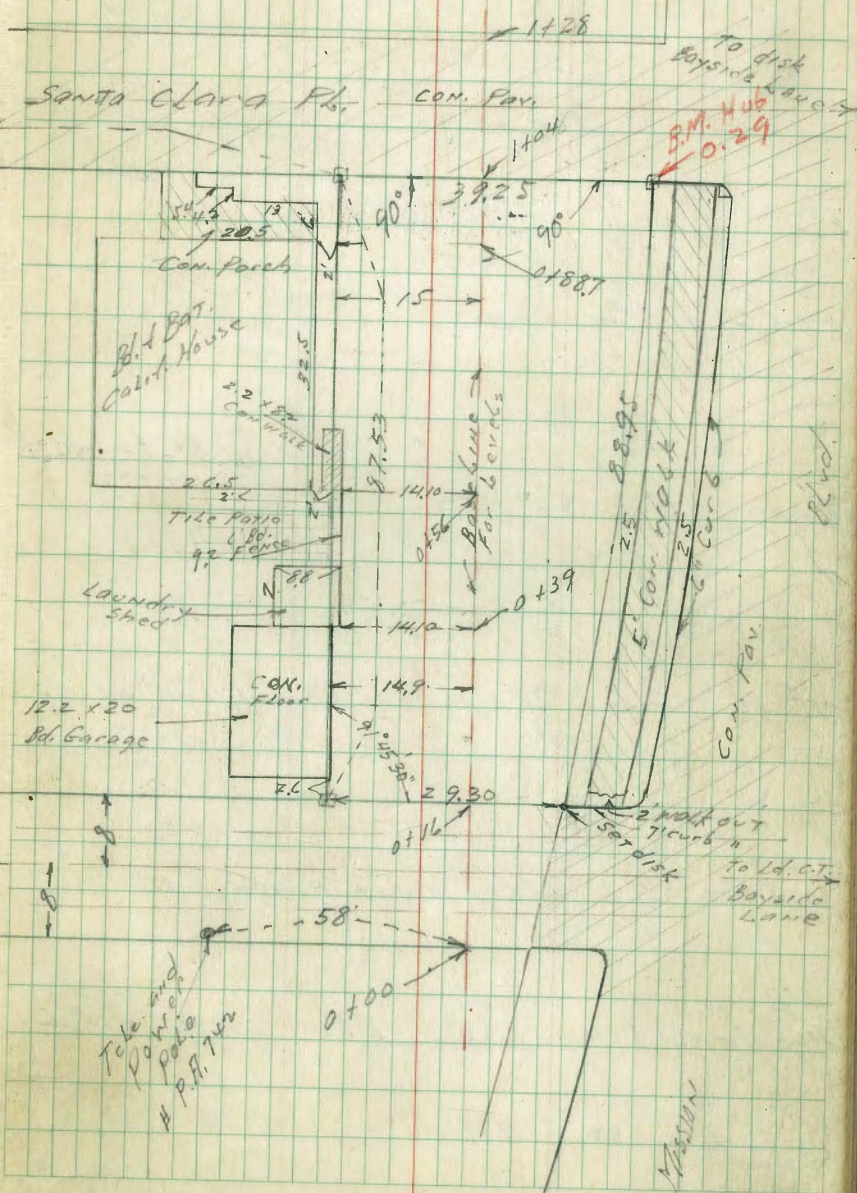 1+28
To disk
Bayside Lane
Santa Clara Pl. Con. Pav.
B.M. Hub
0.29
1+04
39.25
90°
90°
5.4
4.2
13
6
20.5
Con. Porch
2'
0+88.7
15
Bd. & Bat.
Calif. House
32.5
2.2 x 8.2
Con Walk
87.53
Base Line
For Levels
88.95
2.5
5' Con. Walk
2.5
6" Curb
Blvd.
26.5
2'
14.10
0+56
Tile Patio
Bd.
9.2 Fence
8.8
Laundry
Shed
14.10
0+39
Con.
Floor
14.9
12.2 x 20
Bd. Garage
91°45'30"
Con. Pav.
2.6
29.30
0+16
2' Walk out
7' curb "
Set disk
To Ld. C.T.
Bayside
Lane
8
8
58'
0+00
Tele. and
Power
Pole
# P.A. 742
Mission